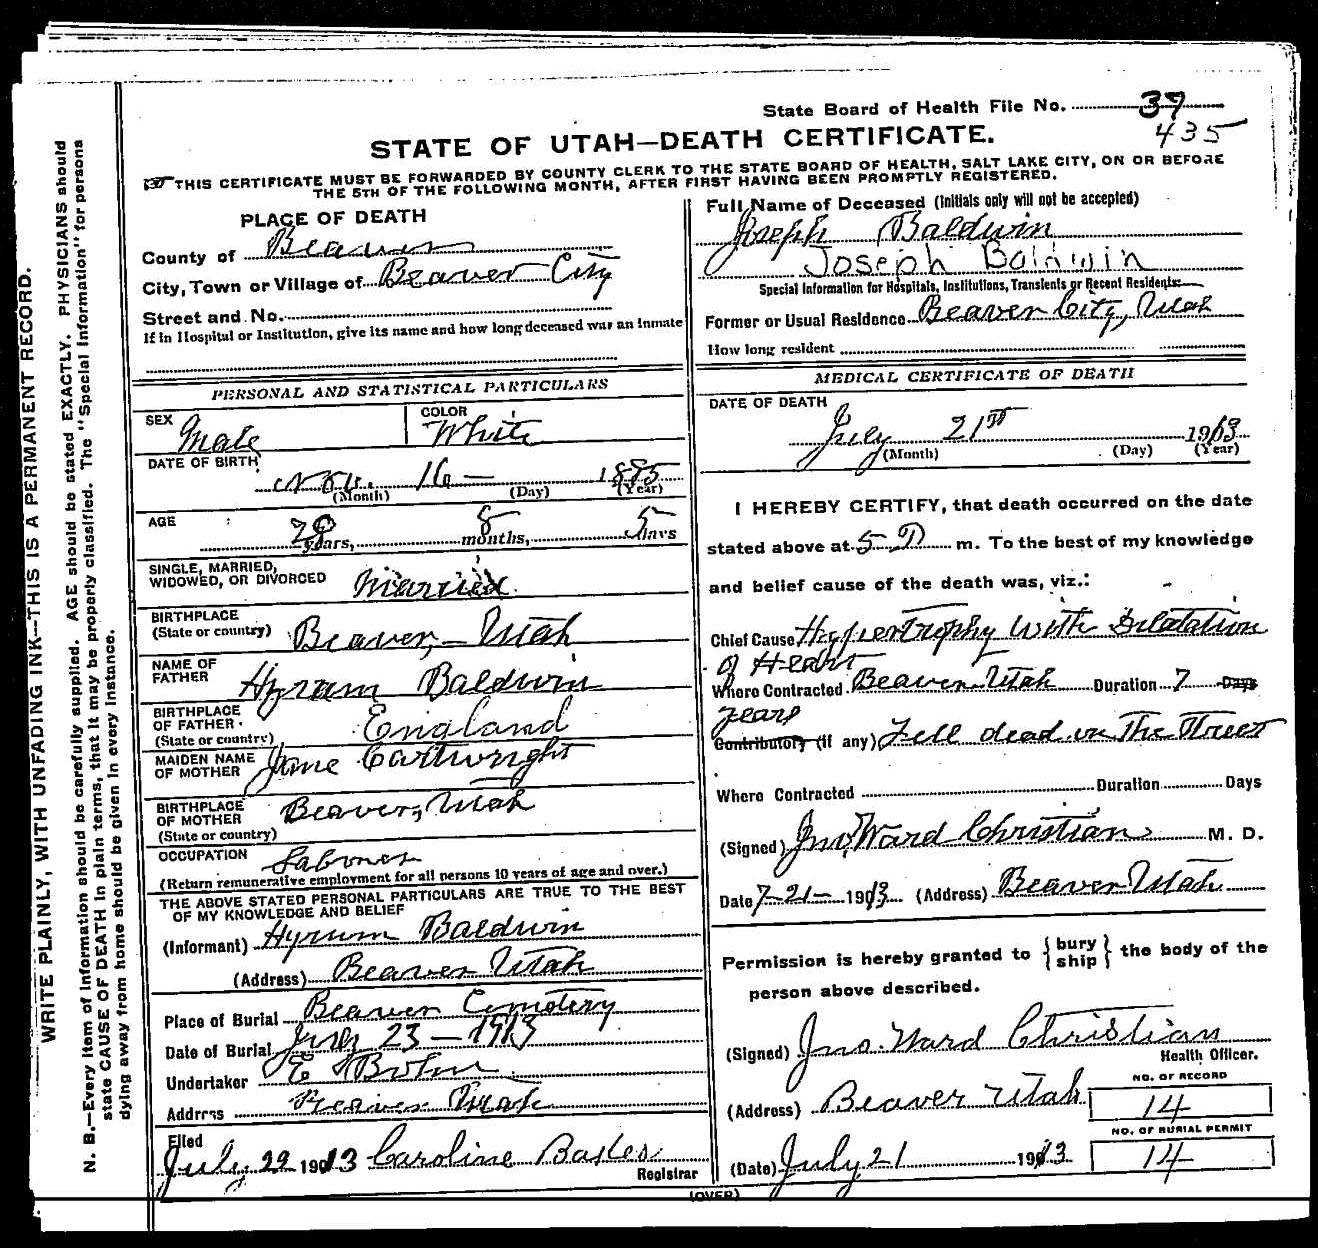 State Board of Health File No. 37
435
STATE OF UTAH—DEATH CERTIFICATE.
THIS CERTIFICATE MUST BE FORWARDED BY COUNTY CLERK TO THE STATE BOARD OF HEALTH, SALT LAKE CITY, ON OR BEFORE
THE 5TH OF THE FOLLOWING MONTH, AFTER FIRST HAVING BEEN PROMPTLY REGISTERED.
WRITE PLAINLY, WITH UNFADING INK—THIS IS A PERMANENT RECORD.
N. B.—Every item of information should be carefully supplied. AGE should be stated EXACTLY. PHYSICIANS should
state CAUSE OF DEATH in plain terms, that it may be properly classified. The "Special Information" for persons
dying away from home should be given in every instance.
PLACE OF DEATH
County of Beaver
City, Town or Village of Beaver City
Street and No.
If in Hospital or Institution, give its name and how long deceased was an inmate
PERSONAL AND STATISTICAL PARTICULARS
SEX Male COLOR White
DATE OF BIRTH Nov. 16 — 1885
(Month) (Day) (Year)
AGE 28 years, 8 months, 5 days
SINGLE, MARRIED,
WIDOWED, OR DIVORCED Married
BIRTHPLACE
(State or country) Beaver, Utah
NAME OF
FATHER Hyrum Baldwin
BIRTHPLACE
OF FATHER
(State or country) England
MAIDEN NAME
OF MOTHER Jane Cartwright
BIRTHPLACE
OF MOTHER
(State or country) Beaver, Utah
OCCUPATION Laborer
(Return remunerative employment for all persons 10 years of age and over.)
THE ABOVE STATED PERSONAL PARTICULARS ARE TRUE TO THE BEST
OF MY KNOWLEDGE AND BELIEF
(Informant) Hyrum Baldwin
(Address) Beaver Utah
Place of Burial Beaver Cemetery
Date of Burial July 23 — 1913
Undertaker E
Address Beaver Utah
Filed
July 29 1913 Caroline
Registrar
Full Name of Deceased (Initials only will not be accepted)
Joseph Baldwin
Joseph Baldwin
Special Information for Hospitals, Institutions, Transients or Recent Residents:
Former or Usual Residence Beaver City, Utah
How long resident
MEDICAL CERTIFICATE OF DEATH
DATE OF DEATH
July 21st 1913
(Month) (Day) (Year)
I HEREBY CERTIFY, that death occurred on the date
stated above at 5 P m. To the best of my knowledge
and belief cause of the death was, viz.:
Chief Cause Hypertrophy with Dilatation
of Heart
Where Contracted Beaver Utah Duration 7 Days
years
Contributory (if any) Fell dead on the Street
Where Contracted Duration Days
(Signed) Jno. Ward Christian M. D.
Date 7-21- 1913 (Address) Beaver Utah
Permission is hereby granted to { bury ship } the body of the
person above described.
(Signed) Jno. Ward Christian
Health Officer.
(Address) Beaver Utah
NO. OF RECORD
14
NO. OF BURIAL PERMIT
14
(Date) July 21 1913
(OVER)